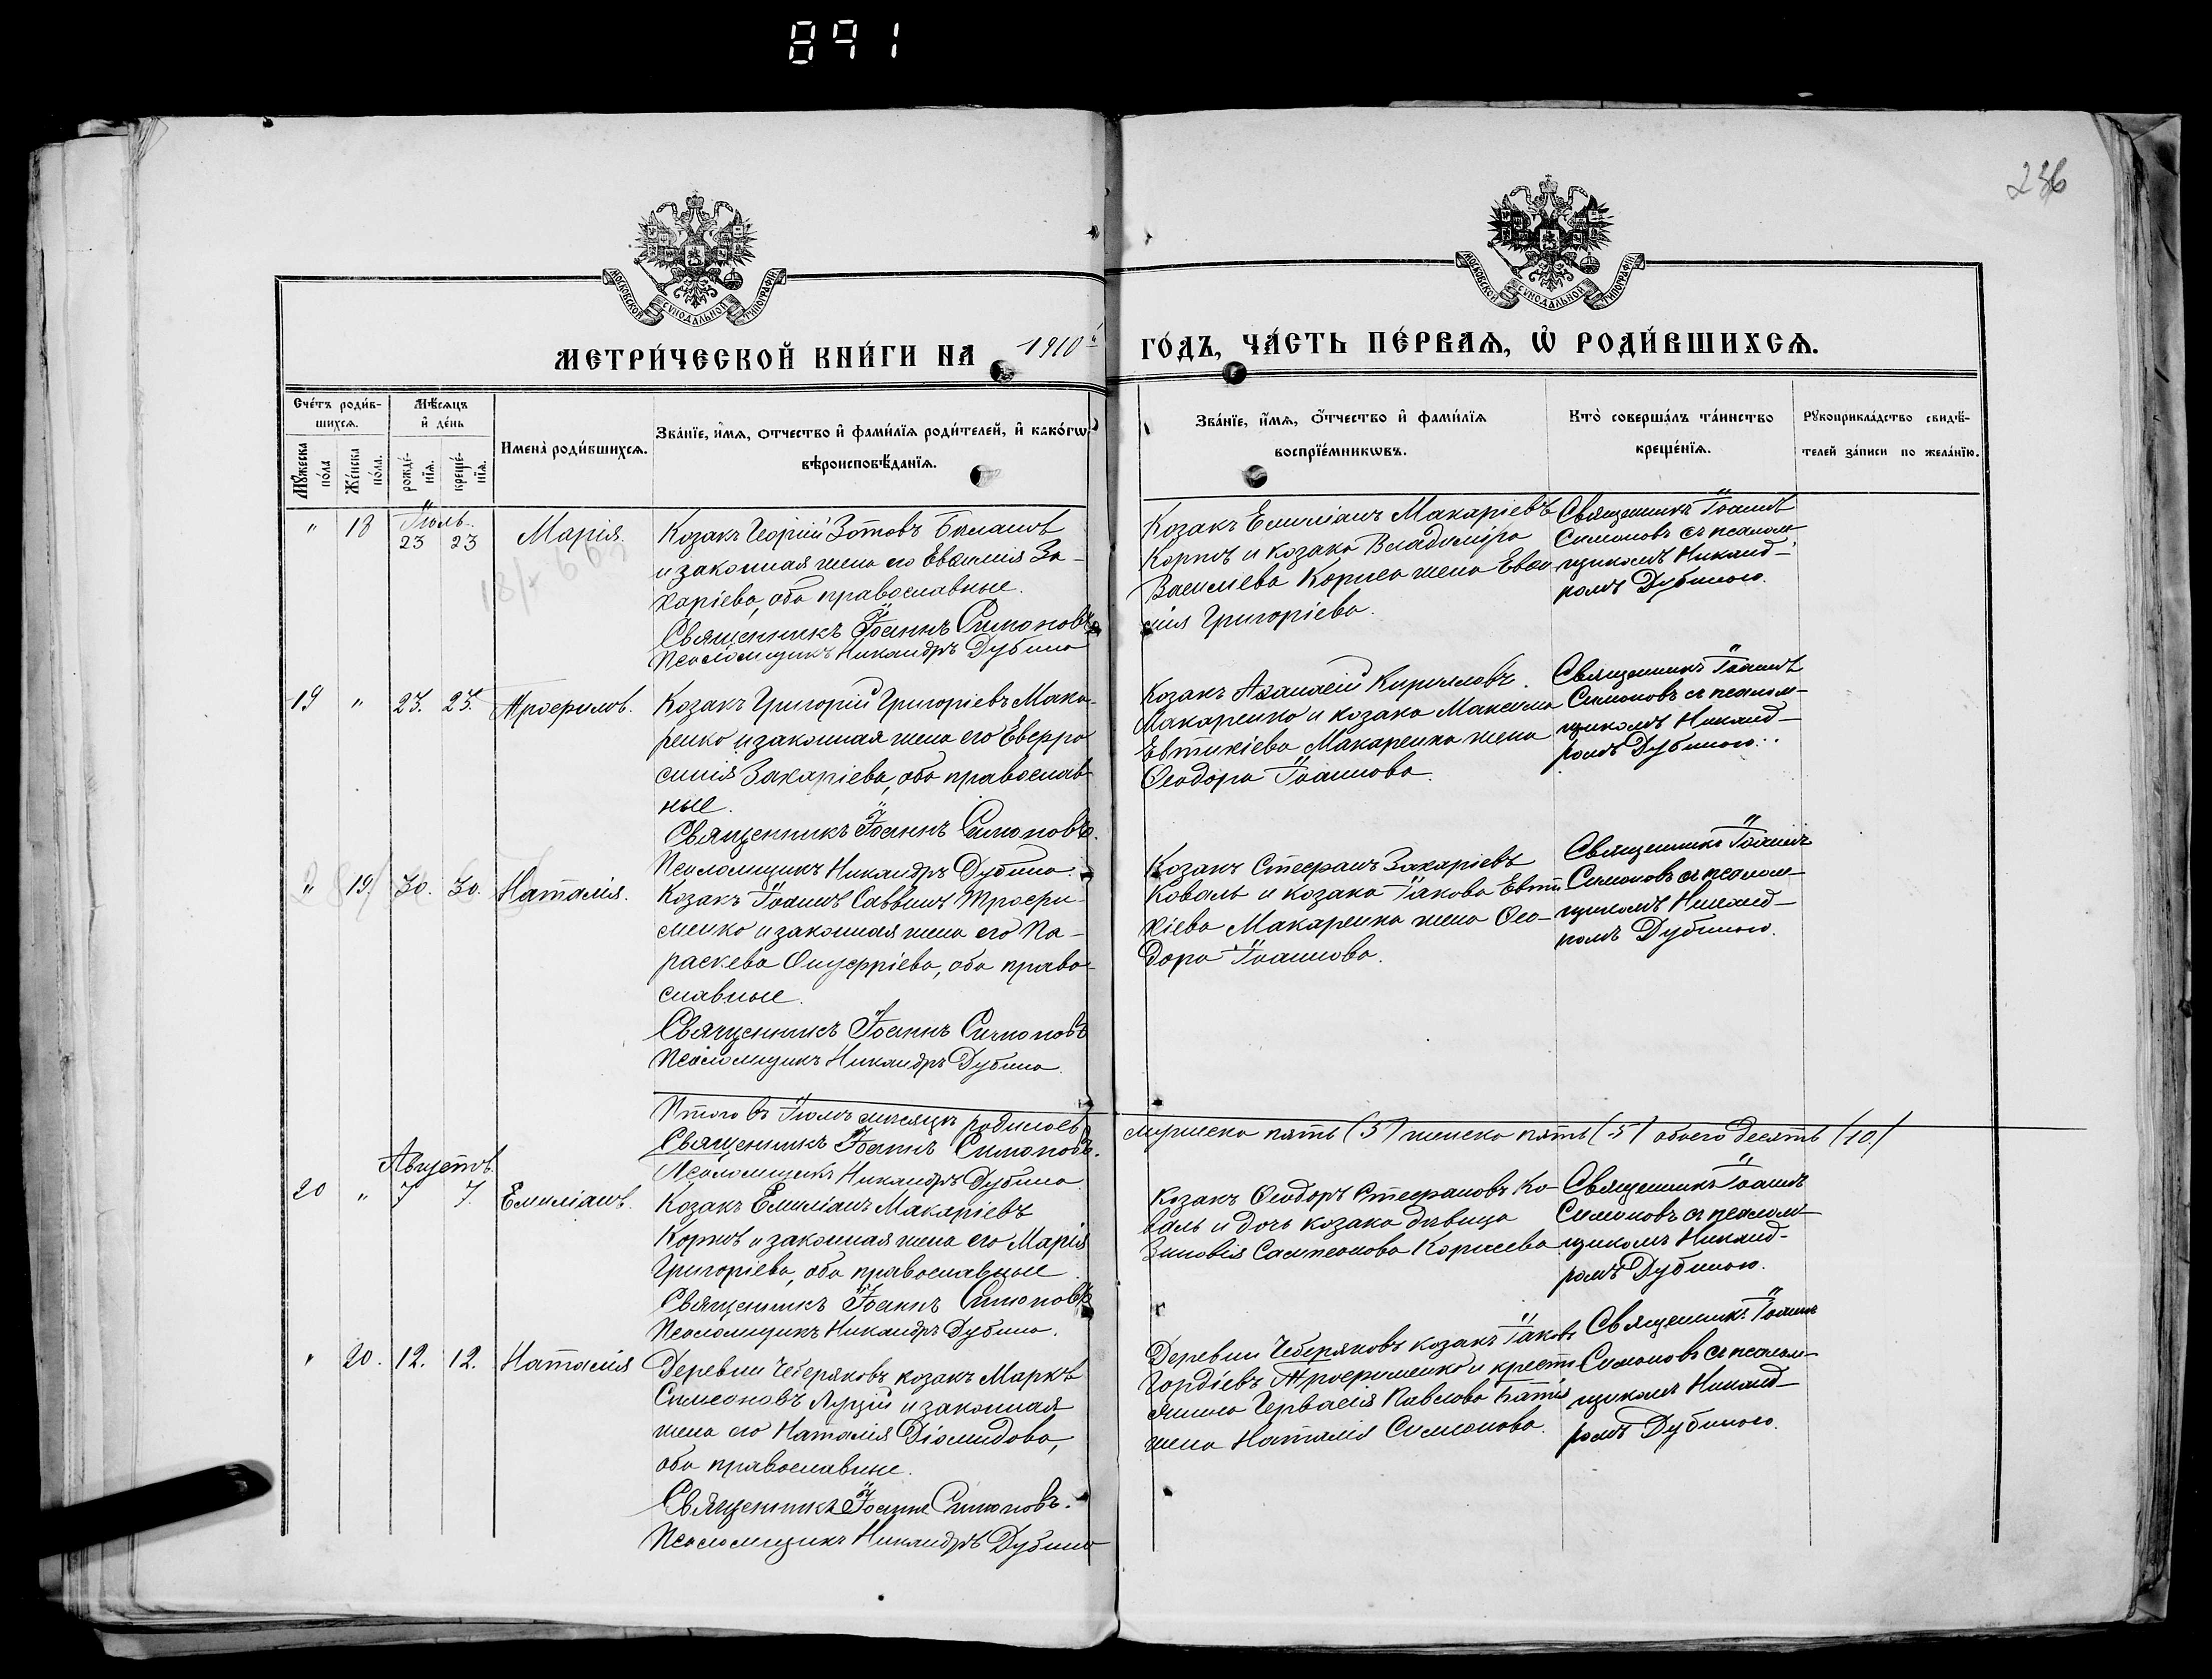 891
236
МОСКОВСКОЙ СѴНОДАЛЬНОЙ ТИПОГРАФІИ
МОСКОВСКОЙ СѴНОДАЛЬНОЙ ТИПОГРАФІИ
МЕТРИ́ЧЕСКОЙ КНИ́ГИ НА 1910й ГО́ДЪ, ЧА́СТЬ ПЕ́РВАѦ, Ѡ҆ РОДИ́ВШИХСѦ.
Сче́тъ роди́в-
шихсѧ.
Мꙋ́жеска по́ла
Же́нска по́ла.
Мѣ́сѧцъ
и҆ де́нь
рожде́-
нїѧ.
креще́-
нїѧ.
Имена̀ роди́вшихсѧ.
Зва́нїе, и҆́мѧ, ѻ҆́тчество и҆ фами́лїѧ роди́телей, и҆ како́гѡ
вѣроисповѣ́данїѧ.
Зва́нїе, и҆́мѧ, ѻ҆́тчество и҆ фами́лїѧ
воспрїе́мникѡвъ.
Кто̀ соверша́лъ та́инство
креще́нїѧ.
Рꙋкоприкла́дство свидѣ́-
телей за́писи по жела́нїю.
" 18 Іюль 23 23 Марія.
Козакъ Георгій Зотовъ
и законная жена его Евѳимія За-
харіева, оба православные.
Священникъ Іоаннъ Симоновъ
Псаломщикъ Никандръ Дубина
Козакъ Емиліанъ Макаріевъ
Коржъ и козака Владиміра
Васильева Коржа жена Евѳи
мія Григоріева.
Священникъ Іоаннъ
Симоновъ съ псалом-
щикомъ Никанд-
ромъ Дубиною.
19 " 23. 23. Трофимъ.
Козакъ Григорій Григоріевъ Мака-
ренко и законная жена его Евфро
синія Захаріева, оба православ-
ные.
Священникъ Іоаннъ Симоновъ.
Псаломщикъ Никандръ Дубина.
Козакъ Аѳанасій Кирилловъ
Макаренко и козака Максима
Евтихіева Макаренка жена
Ѳеодора Іоаннова.
Священникъ Іоаннъ
Симоновъ съ псалом-
щикомъ Никанд-
ромъ Дубиною.
" 19 30. 30. Наталія.
Козакъ Іоаннъ Саввинъ Трофи-
менко и законная жена его Па-
раскева Онуфріева, оба право-
славные.
Священникъ Іоаннъ Симоновъ
Псаломщикъ Никандръ Дубина.
Козакъ Стефанъ Захаріевъ
Коваль и козака Іакова Евти
хіева Макаренка жена Ѳео-
дора Іоаннова.
Священникъ Іоаннъ
Симоновъ съ псалом-
щикомъ Никанд-
ромъ Дубиною.
Итого въ Іюлѣ мѣсяцѣ родилось мужеска пять (5) женска пять (5) обоего десять (10)
Священникъ Іоаннъ Симоновъ.
Псаломщикъ Никандръ Дубина
Августъ.
20 " 7 7. Емиліанъ.
Козакъ Емиліанъ Макаріевъ
Коржъ и законная жена его Марія
Григоріева, оба православные
Священникъ Іоаннъ Симоновъ
Псаломщикъ Никандръ Дубина.
Козакъ Ѳеодоръ Стефановъ Ко-
валь и дочь козака дѣвица
Зиновія Сампсонова Коржева
Священникъ Іоаннъ
Симоновъ съ псалом-
щикомъ Никанд-
ромъ Дубиною.
" 20. 12. 12. Наталія
Деревни Чеберяковъ козакъ Маркъ
Симеоновъ Луцій и законная
жена его Наталія Діомидова,
оба православные.
Священникъ Іоаннъ Симоновъ.
Псаломщикъ Никандръ Дубина
Деревни Чеберяковъ козакъ Іаковъ
Гордіевъ Трофименко и крестя
янина Гервасія Павлова
жена Наталія Симеонова.
Священникъ Іоаннъ
Симоновъ съ псалом-
щикомъ Никанд-
ромъ Дубиною.